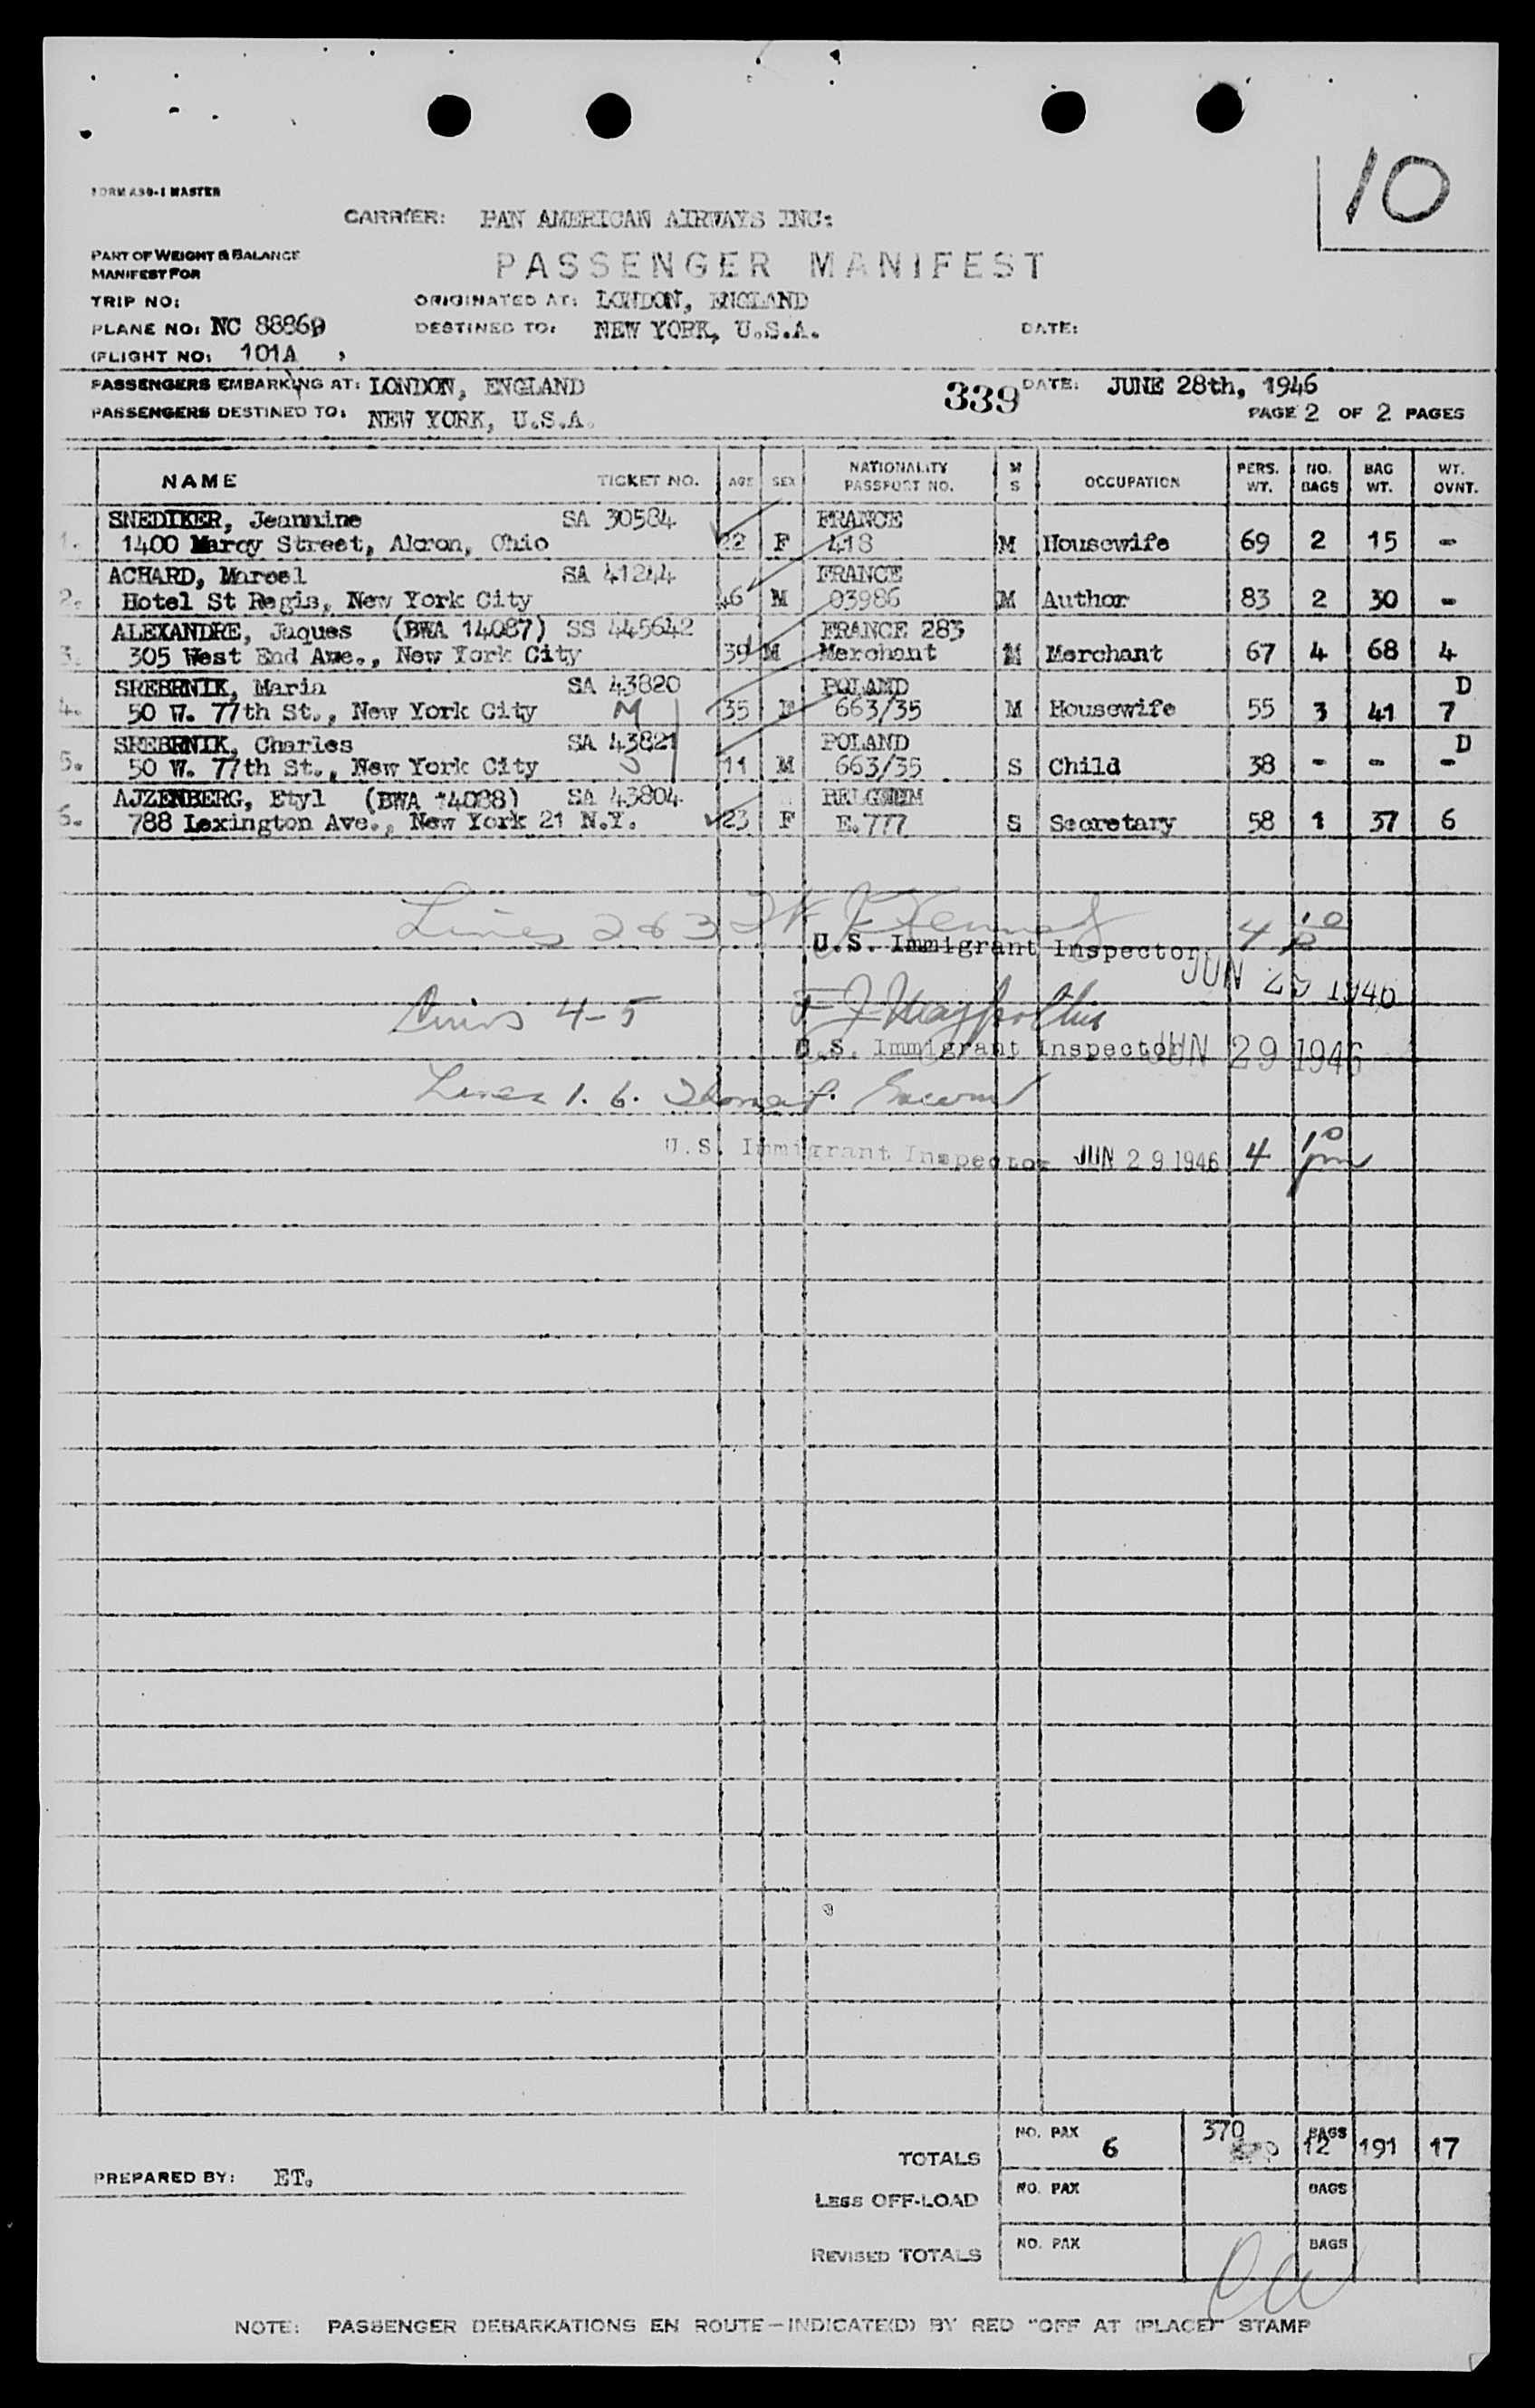 10
FORM A30-1 MASTER
CARRIER: PAN AMERICAN AIRWAYS INC:
PART OF WEIGHT & BALANCE
MANIFEST FOR
PASSENGER MANIFEST
TRIP NO:
ORIGINATED AT: LONDON, ENGLAND
PLANE NO: NC 88868
DESTINED TO: NEW YORK, U.S.A.
DATE:
(FLIGHT NO: 101A ,
PASSENGERS EMBARKING AT: LONDON, ENGLAND
339
DATE: JUNE 28th, 1946
PASSENGERS DESTINED TO: NEW YORK, U.S.A.
PAGE 2 OF 2 PAGES
NAME TICKET NO. AGE SEX NATIONALITY PASSPORT NO. M S OCCUPATION PERS. WT. NO. BAGS BAG WT. WT. OVNT.
SNEDIKER, Jeannine SA 30584 FRANCE
1. 1400 Marcy Street, Akron, Ohio 22 F 418 M Housewife 69 2 15 -
ACHARD, Marcel SA 41244 FRANCE
2. Hotel St Regis, New York City 46 M 03986 M Author 83 2 30 -
ALEXANDRE, Jaques (BWA 14087) SS 445642 FRANCE 283
3. 305 West End Ave., New York City 39 M Merchant M Merchant 67 4 68 4
SREBRNIK, Maria SA 43820 POLAND D
4. 50 W. 77th St., New York City M 35 F 663/35 M Housewife 55 3 41 7
SREBRNIK, Charles SA 43821 POLAND D
5. 50 W. 77th St., New York City 11 M 663/35 S Child 38 - - -
AJZENBERG, Etyl (BWA 14088) SA 43804 BELGIUM
6. 788 Lexington Ave., New York 21 N.Y. 23 F E.777 S Secretary 58 1 37 6
Lines 2 & 3
U.S. Immigrant Inspector 4 10
JUN 29 1946
Lines 4-5
U.S. Immigrant Inspector JUN 29 1946
Lines 1. 6. Thomas P.
U.S. Immigrant Inspector JUN 29 1946 4 10 pm
TOTALS NO. PAX 6 370 BAGS 12 191 17
PREPARED BY: ET.
LESS OFF-LOAD NO. PAX BAGS
REVISED TOTALS NO. PAX BAGS
NOTE: PASSENGER DEBARKATIONS EN ROUTE—INDICATE(D) BY RED "OFF AT (PLACE)" STAMP